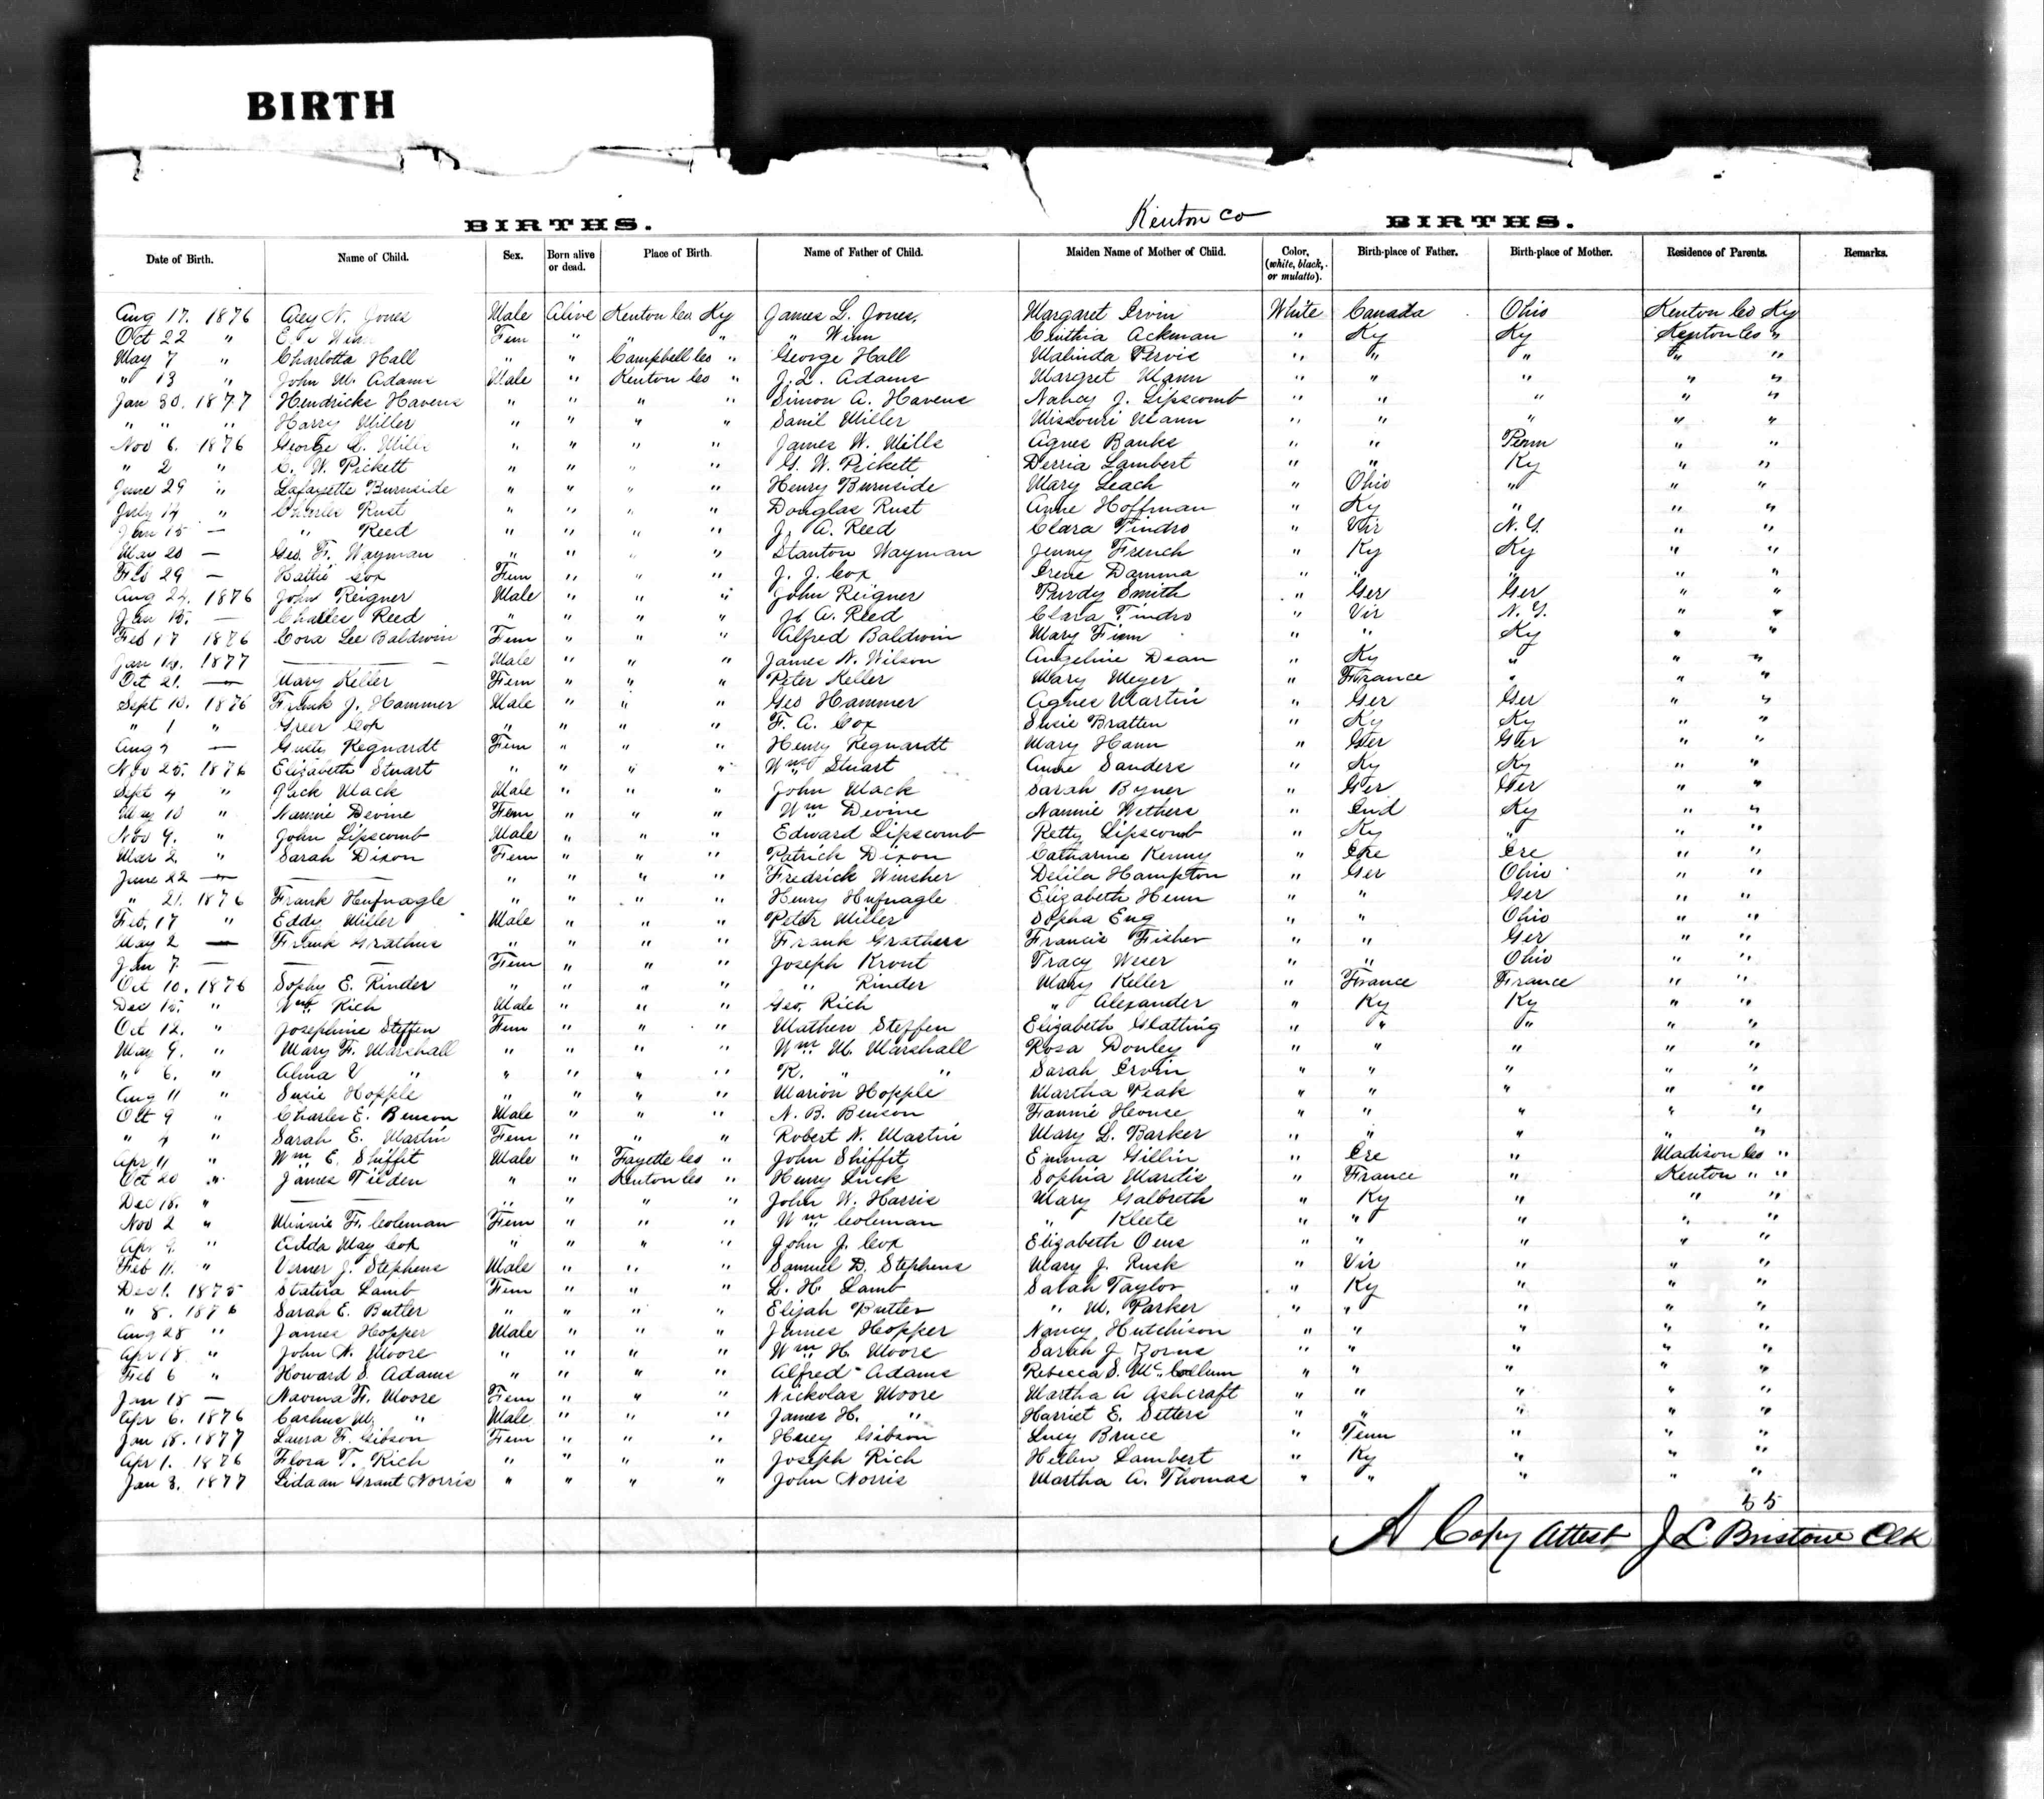 BIRTH
BIRTHS. Kenton Co BIRTHS.
Date of Birth. Name of Child. Sex. Born alive or dead. Place of Birth. Name of Father of Child. Maiden Name of Mother of Child. Color, (white, black, or mulatto). Birth-place of Father. Birth-place of Mother. Residence of Parents. Remarks.
Aug 17. 1876 N. Jones Male Alive Kenton Co Ky James L. Jones. Margaret Ervin White Canada Ohio Kenton Co Ky
Oct 22 " Fem " " " " Winn Cinthia Ackman " Ky Ky Kenton Co "
May 7 " Charlotta Hall " " Campbell Co " George Hall Malinda " " " " "
" 13 " John M. Adams Male " Kenton Co " J. L. Adams Margret Mann " " " " "
Jan 30. 1877 Hendricks Havens " " " " Simon A. Havens Nancy J. Lipscomb " " " " "
" " " Harry Miller " " " " Saml Miller Missouri Mann " " " " "
Nov 6. 1876 George C. Mills " " " " James W. Mills Agnes Banks " " Penn " "
" 2 " C. W. Pickett " " " " G. W. Pickett Derria Lambert " " Ky " "
June 29 " Lafayette Burnside " " " " Henry Burnside Mary Leach " Ohio " " "
July 14 " Charles Rust " " " " Douglas Rust Anne Hoffman " Ky " " "
Jan 15 — " Reed " " " " J. A. Reed Clara Tindro " Vir N. Y. " "
May 20 — Geo. F. Wayman " " " " Stanton Wayman Jenny French " Ky Ky " "
Feb 29 — Hattie Cox Fem " " " J. J. Cox Irene Damma " " " " "
Aug 24. 1876 John Reigner Male " " " John Reigner Purdy Smith " Ger Ger " "
Jan 15. — Charles Reed " " " " J. A. Reed Clara Tindro " Vir N. Y. " "
Feb 17 1876 Cora Lee Baldwin Fem " " " Alfred Baldwin Mary Finn " " Ky " "
Jan 14. 1877 — Male " " " James N. Wilson Angeline Dean " Ky " " "
Oct 21. — Mary Keller Fem " " " Peter Keller Mary Meyer " France " " "
Sept 13. 1876 Frank J. Hammer Male " " " Geo Hammer Agnes Martin " Ger Ger " "
" 1 " Greer Cox " " " " F. A. Cox Susie Bratten " Ky Ky " "
Aug 7 — Gusty Regnardt Fem " " " Henry Regnardt Mary Hann " Ger Ger " "
Nov 25. 1876 Elizabeth Stuart " " " " Wm Stuart Anne Sanders " Ky Ky " "
Sept 4 " Jack Mack Male " " " John Mack Sarah Byner " Ger Ger " "
May 13 " Nannie Devine Fem " " " Wm Devine Nannie Wethers " Ind Ky " "
Nov 9. " John Lipscomb Male " " " Edward Lipscomb Retty Lipscomb " Ky " " "
Mar 2. " Sarah Dixon Fem " " " Patrick Dixon Catharine Kenny " Ire Ire " "
June 22 — — " " " " Fredrick Winsher Delila Hampton " Ger Ohio " "
" 21. 1876 Frank Hufnagle " " " " Henry Hufnagle Elizabeth Henn " " Ger " "
Feb. 17 " Eddy Miller Male " " " Peter Miller Sopha Eng " " Ohio " "
May 2 — Frank Grathus " " " " Frank Grathers Francis Fisher " " Ger " "
Jan 7. — — Fem " " " Joseph Krout Tracy Weser " " Ohio " "
Oct 10. 1876 Sophy E. Rinder " " " " " Rinder Mary Keller " France France " "
Dec 15. " Wm Rich Male " " " Geo. Rich " Alexander " Ky Ky " "
Oct 12. " Josephine Steffen Fem " " " Mathew Steffen Elizabeth Glatting " " " " "
May 9. " Mary F. Marshall " " " " Wm M. Marshall Rosa Donley " " " " "
" 6. " Alma V " " " " " R. " " Sarah Ervin " " " " "
Aug 11 " Susie Hopple " " " " Marion Hopple Martha Peak " " " " "
Oct 9 " Charles E. Benson Male " " " N. B. Benson Fannie House " " " " "
" 4 " Sarah E. Martin Fem " " " Robert N. Martin Mary L. Barker " " " " "
Apr 11 " Wm E. Shiffit Male " Fayette Co " John Shiffit Emma Gillin " Ire " Madison Co "
Oct 20 " James Tilden " " Kenton Co " Henry Luck Sophia Maritis " France " Kenton " "
Dec 18. " — " " " " John W. Harris Mary Galbreth " Ky " " "
Nov 2 " Minnie F. Coleman Fem " " " Wm Coleman " Kleete " " " " "
Apr 9. " Adda May Cox " " " " John J. Cox Elizabeth Oens " " " " "
Feb 11. " Verner J. Stephens Male " " " Samuel D. Stephens Mary J. Rusk " Vir " " "
Dec 1. 1875 Statira Lamb Fem " " " L. H. Lamb Sarah Taylor " Ky " " "
" 8. 1876 Sarah E. Butler " " " " Elijah Butler " M. Parker " " " " "
Aug 28 " James Hopper Male " " " James Hopper Nancy Hutchison " " " " "
Apr 18 " John N. Moore " " " " Wm H. Moore Sarah J " " " " "
Feb 6 " Howard S. Adams " " " " Alfred Adams Rebecca S. McCollum " " " " "
Jan 18 — Naoma F. Moore Fem " " " Nickolas Moore Martha A Ashcraft " " " " "
Apr 6. 1876 Cashus M. " Male " " " James H. " Harriet E. Setters " " " " "
Jan 18. 1877 Laura F. Gibson Fem " " " Gibson Lucy Bruce " Tenn " " "
Apr 1. 1876 Flora T. Rich " " " " Joseph Rich Hellen Lambert " Ky " " "
Jan 3. 1877 Lidaan Grant Norris " " " " John Norris Martha A. Thomas " " " " "
55
A Copy Attest J L Bristow Clk